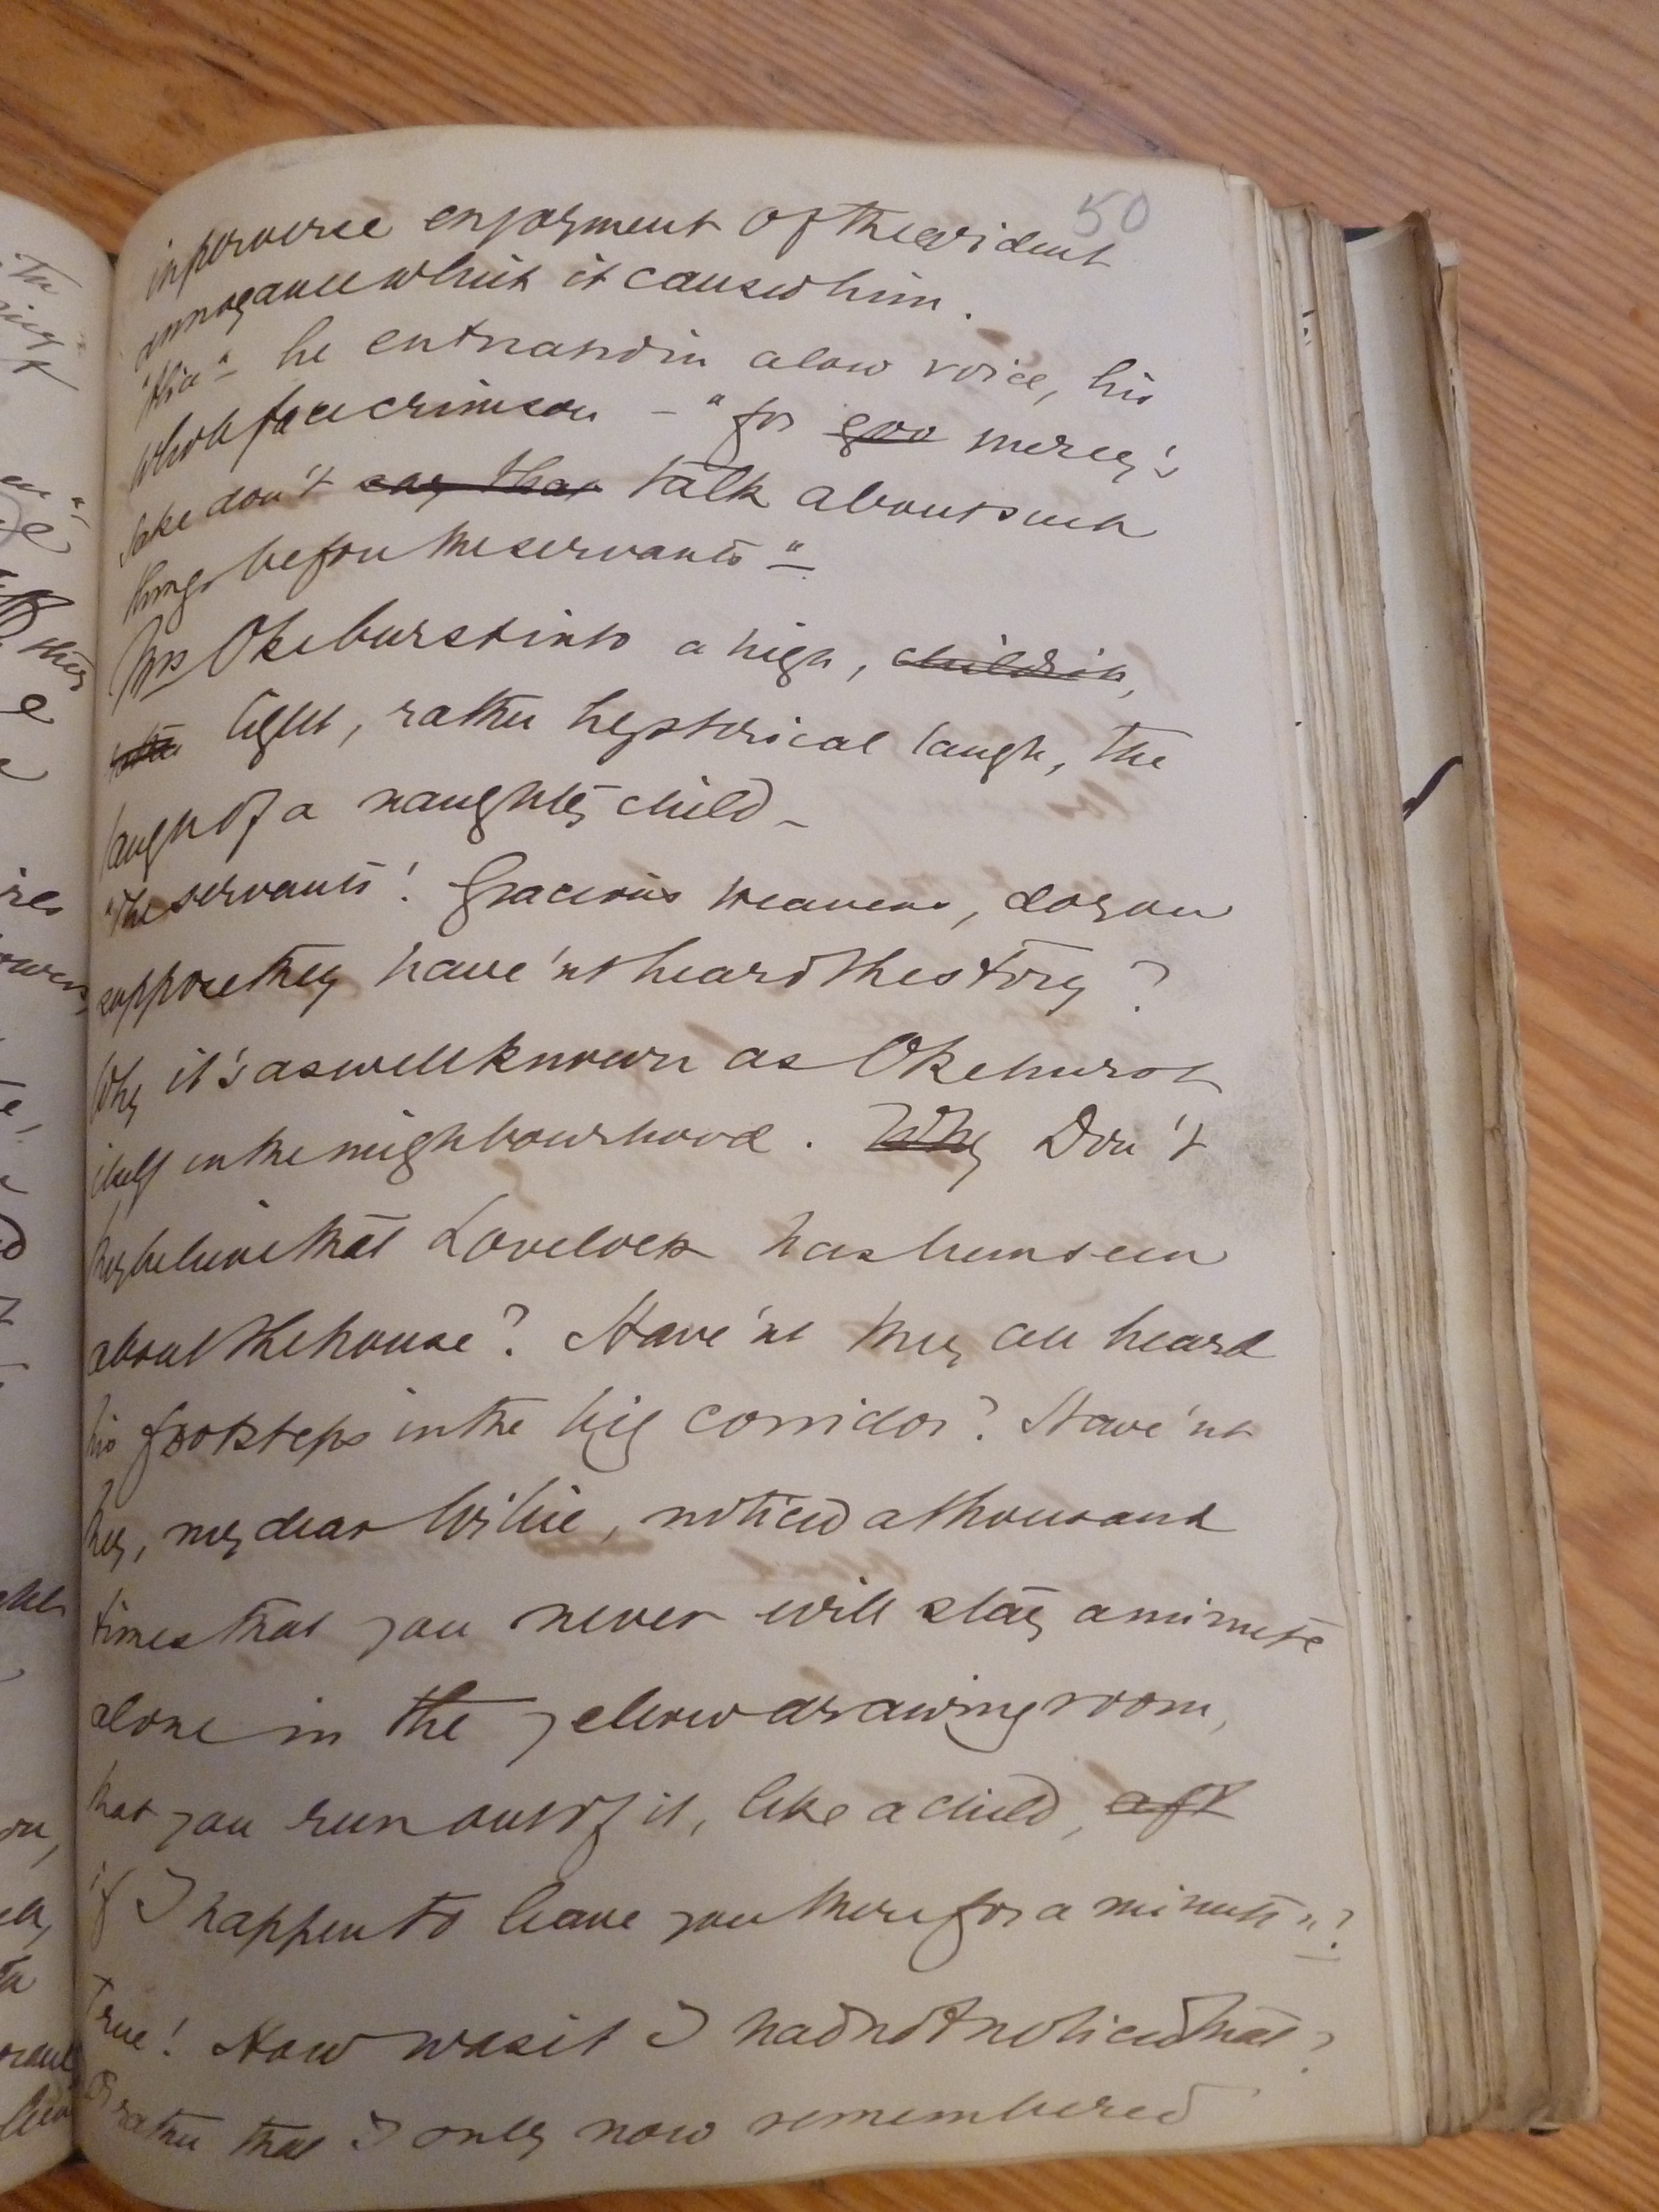 50
in perverse enjoyment of the evident
annoyance which it caused him.
"Alice" he entreated in a low voice, his
whole face crimson - "for goo mercy's
sake don't say that talk about such
things before the servants"
Mrs Oke burst into a high, childish,
rather light, rather hysterical laugh, the
laugh of a naughty child -
"The servants! Gracious heavens, do you
suppose they have'nt heard the story?
Why it's as well known as Okehurst
itself in the neighbourhood. Why Don't
they believe that Lovelock has been seen
about the house? Have'nt they all heard
his footsteps in the big corridor? Have'nt
they, my dear Willie, noticed a thousand
times that you never will stay a minute
alone in the yellow drawing room,
that you run out of it, like a child, aft
if I happen to leave you there for a minute"?
True! How was it I had not noticed that?
Or rather that I only now remembered